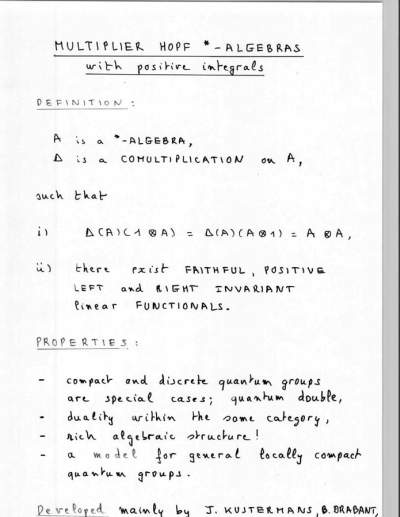 MULTIPLIER HOPF *-ALGEBRAS
with positive integrals
DEFINITION :
A is a *-ALGEBRA,
Δ is a COMULTIPLICATION on A,
such that
i) Δ(A)(1⊗A) = Δ(A)(A⊗1) = A⊗A,
ii) there exist FAITHFUL, POSITIVE
LEFT and RIGHT INVARIANT
linear FUNCTIONALS.
PROPERTIES :
- compact and discrete quantum groups
are special cases; quantum double,
- duality within the same category,
- rich algebraic structure!
- a model for general locally compact
quantum groups.
Developed mainly by J. KUSTERMANS, B. DRABANT,